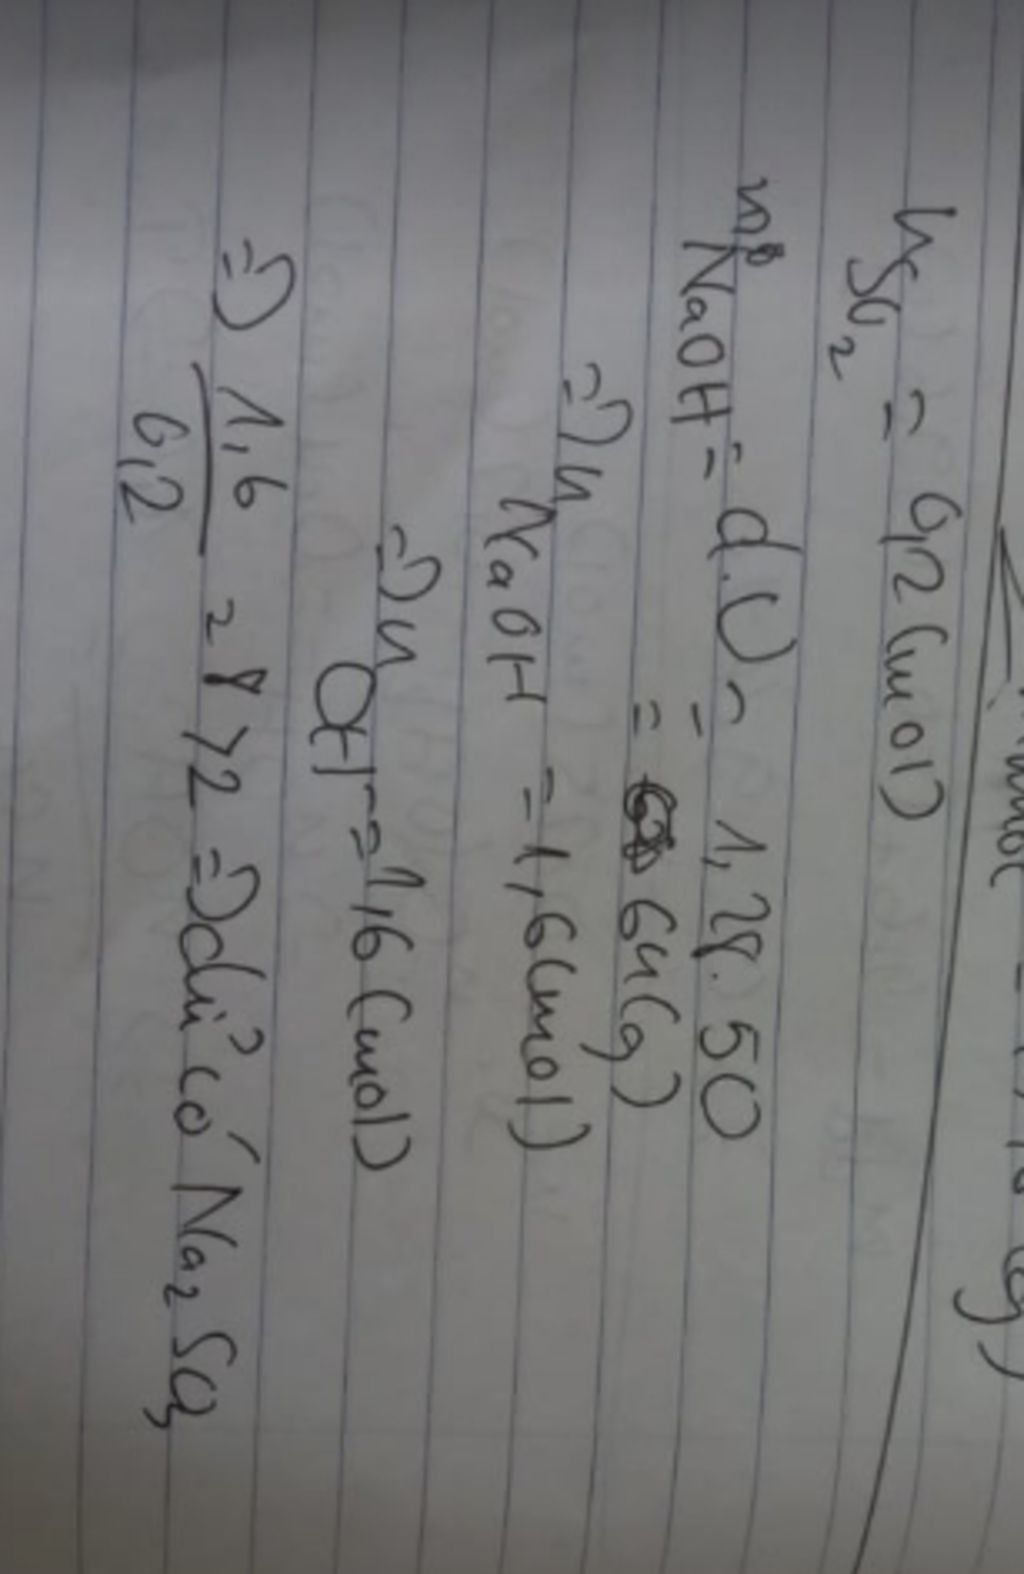 nSO₂ = 0,2 (mol)
mNaOH = d.V = 1,28.50
= 64(g)
=> nNaOH = 1,6(mol)
=> nOH⁻ = 1,6 (mol)
=> 1,6/0,2 = 8 > 2 => chỉ có Na₂SO₃